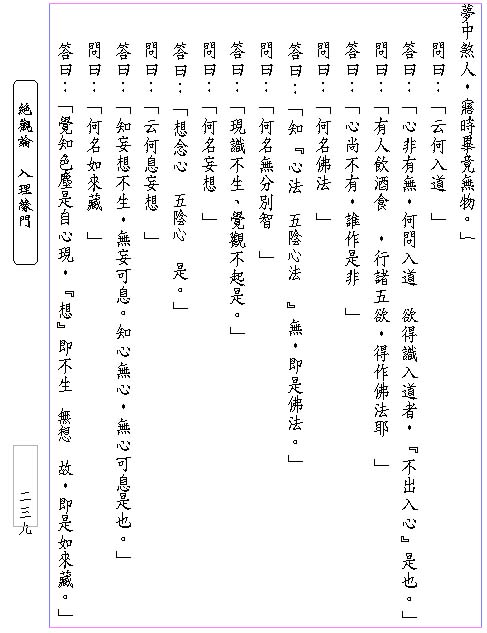 夢中煞人，寤時畢竟無物。」
問曰：「云何入道 」
答曰：「心非有無，何問入道 欲得識入道者，『不出入心』是也。」
問曰：「有人飲酒食 ，行諸五欲，得作佛法耶 」
答曰：「心尚不有，誰作是非 」
問曰：「何名佛法 」
答曰：「知『心法 五陰心法 』無，即是佛法。」
問曰：「何名無分別智 」
答曰：「現識不生、覺觀不起是。」
問曰：「何名妄想 」
答曰：「想念心 五陰心 是。」
問曰：「云何息妄想 」
答曰：「知妄想不生，無妄可息。知心無心，無心可息是也。」
問曰：「何名如來藏 」
答曰：「覺知色塵是自心現，『想』即不生 無想 故，即是如來藏。」
絕觀論 入理緣門
二三九